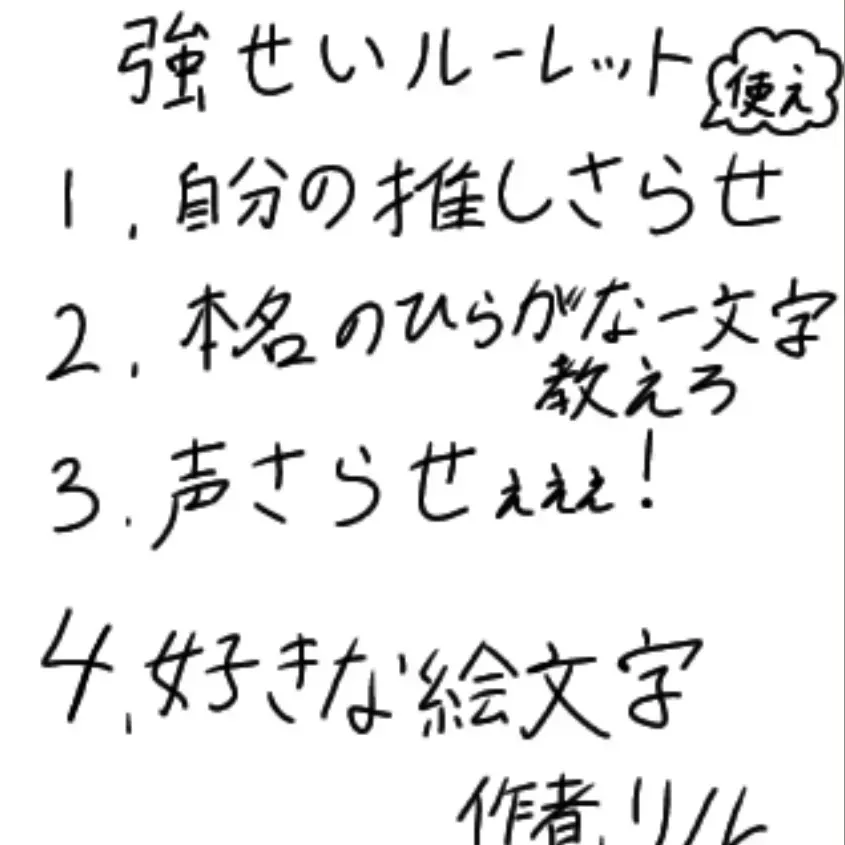 強せいルーレット
使え
1.自分の推しさらせ
2.本名のひらがな一文字
教えろ
3.声さらせぇぇぇ!
4.好きな絵文字
作者.リル